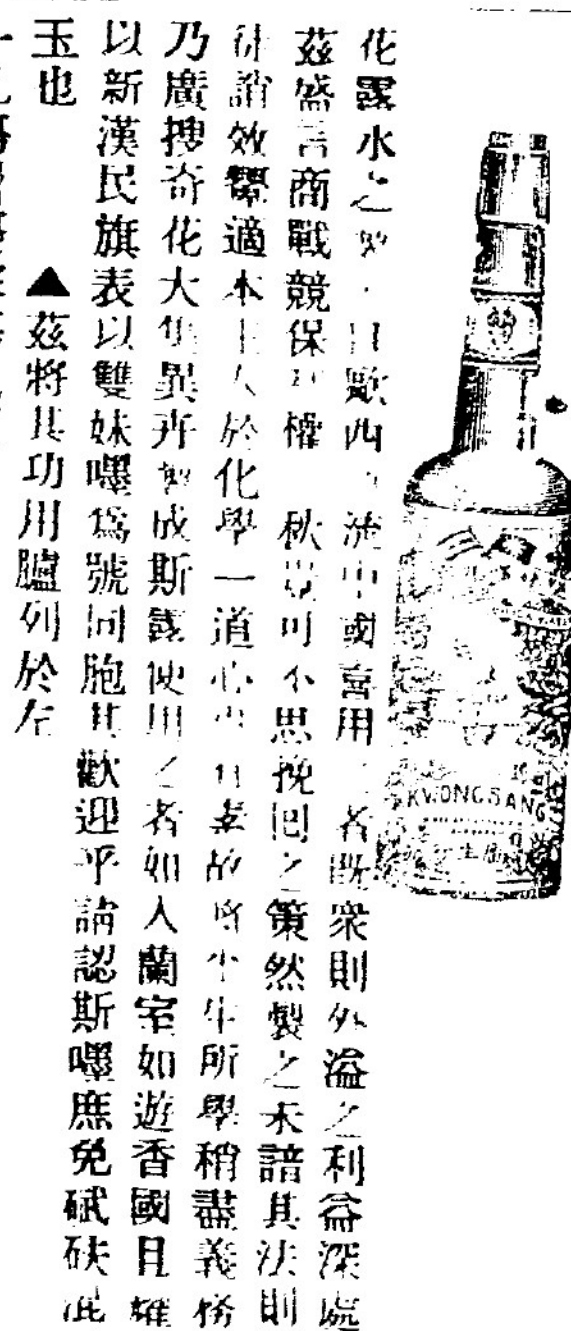 花露水之製 日歐西 流中國喜用 者既衆則外溢之利益深處
茲盛言商戰競保利權 秋豈可不思挽囘之策然製之未諳其法則
徒誚效顰適本主人於化學一道心 有素故將半生所學稍盡義務
乃廣搜奇花大集異卉製成斯露使用之者如入蘭室如遊香國且耀
以新漢民旗表以雙妹嘜爲號同胞其歡迎乎請認斯嘜庶免碔砆混
玉也 ▲茲將其功用臚列於左
KWONGSANG